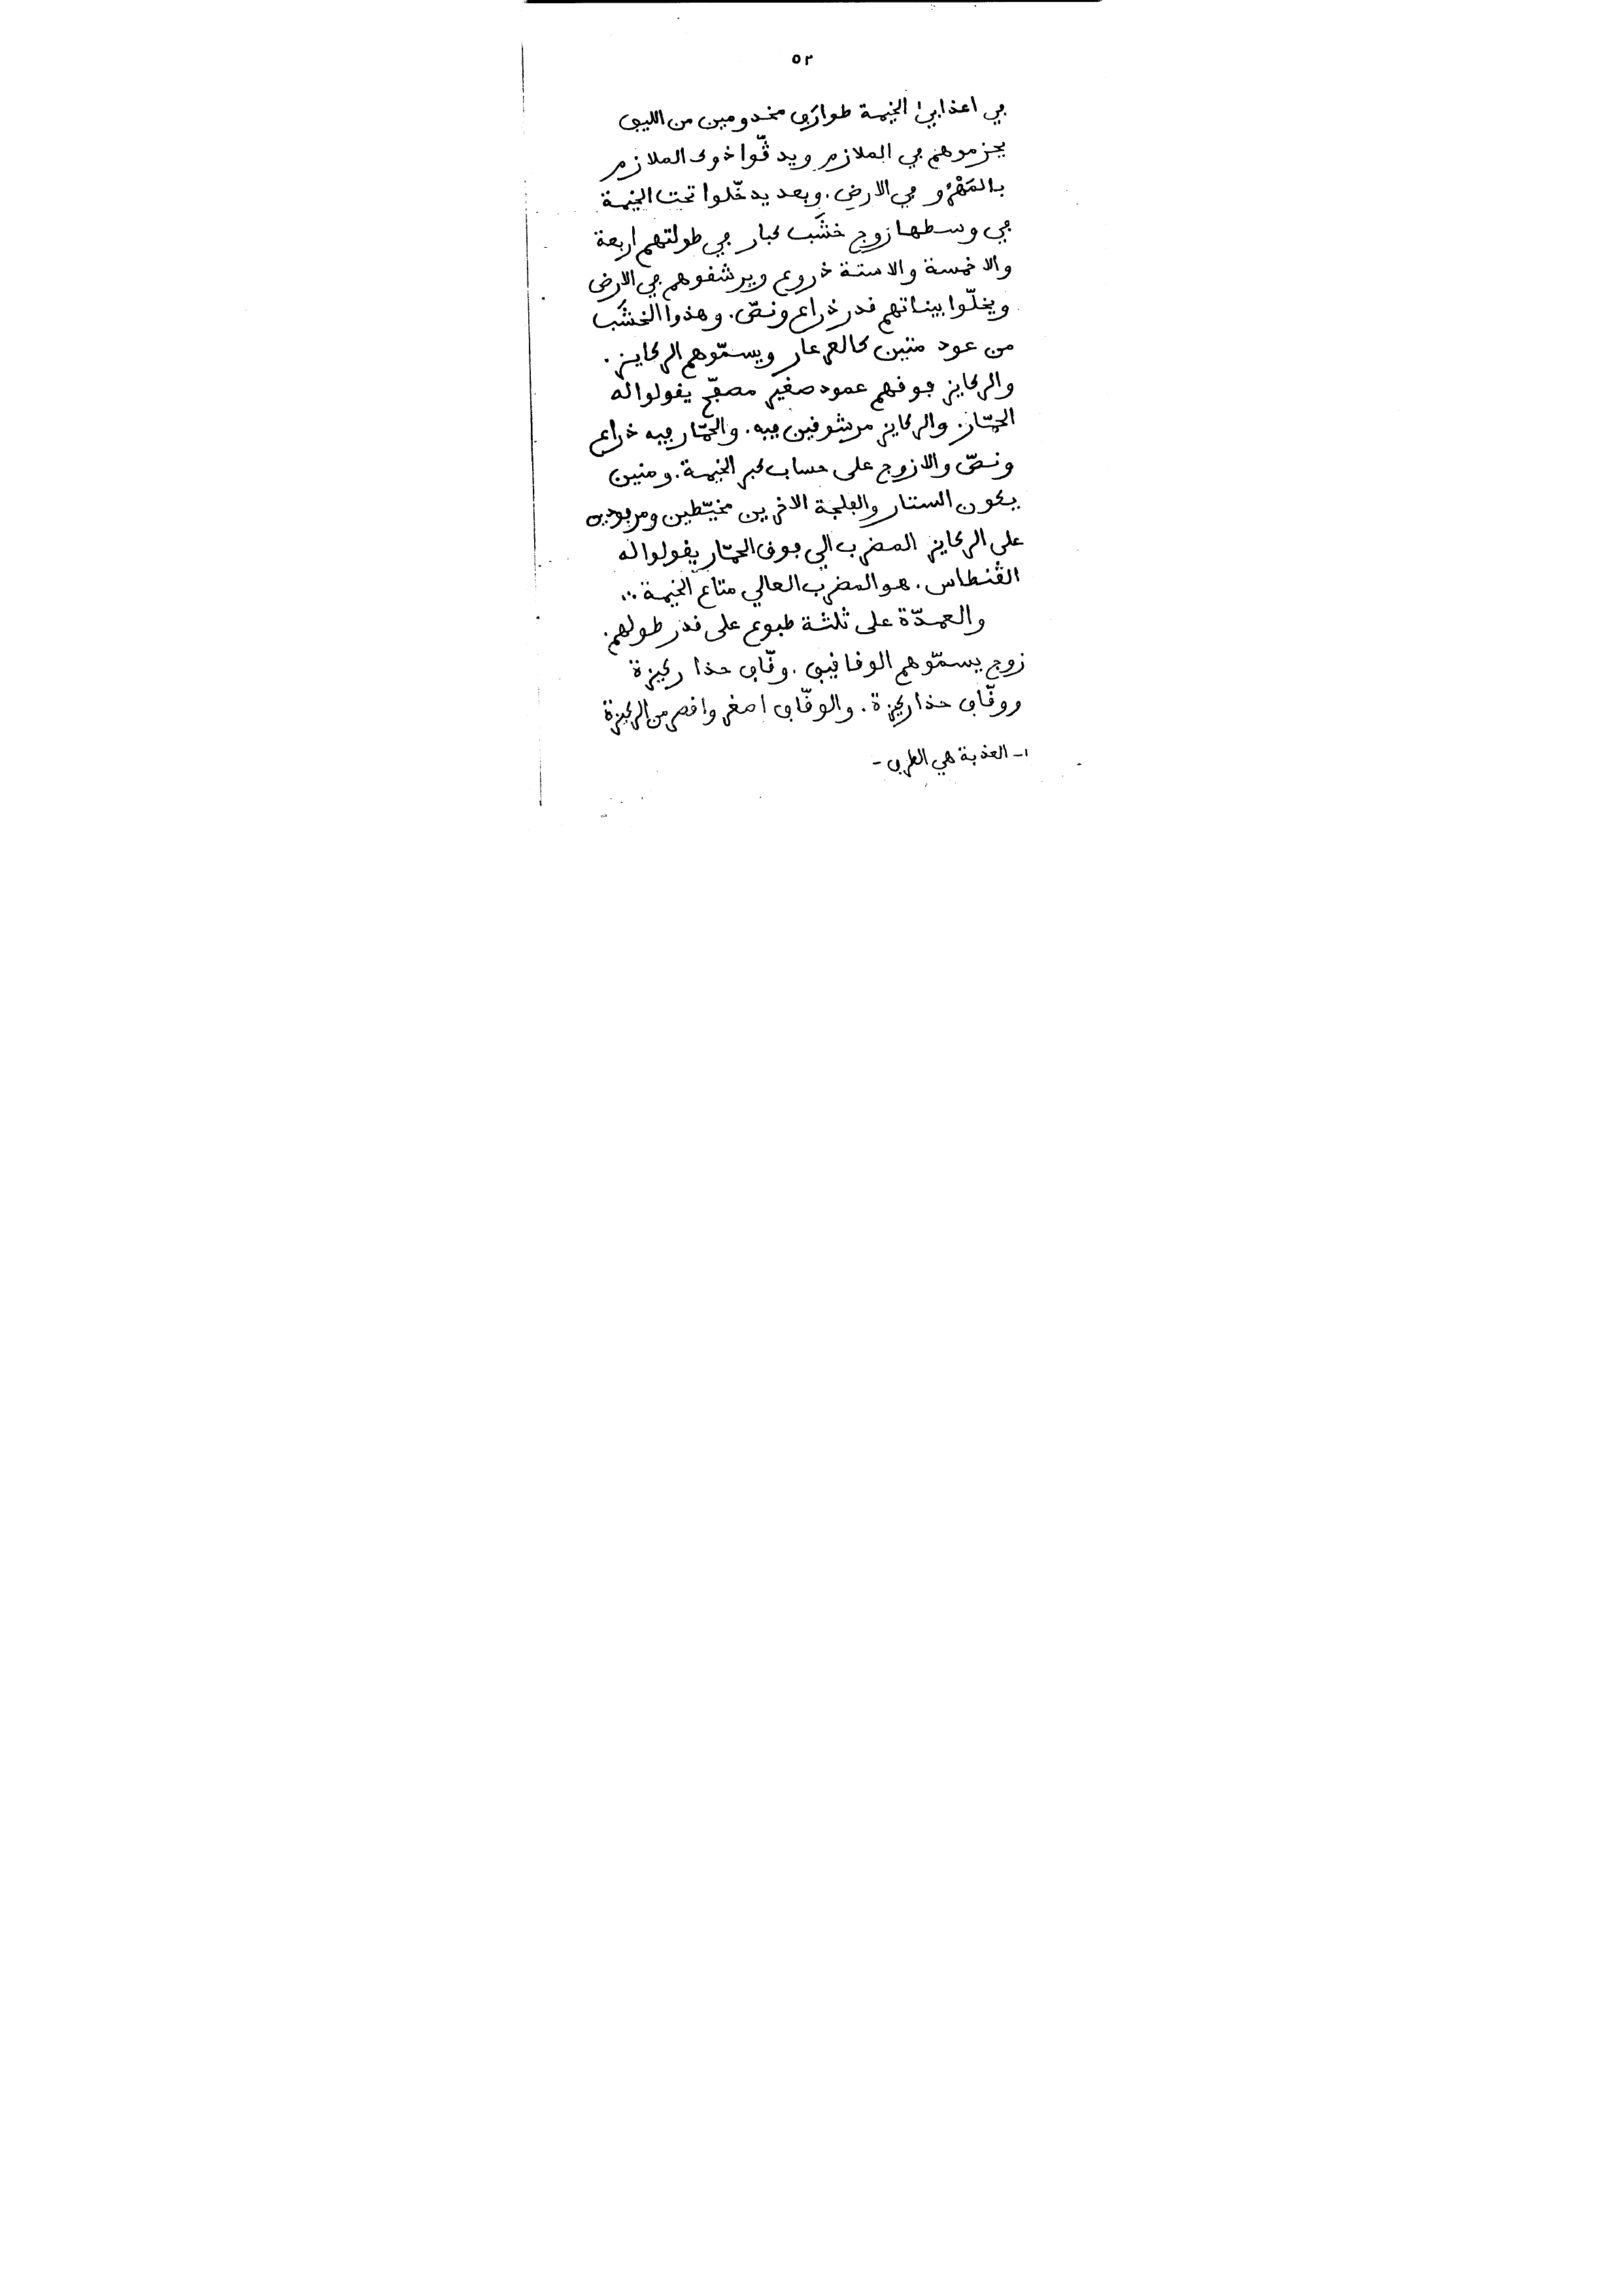 ٥٢
في اعذابي١ الخيمة طوارَف مخدومين من الليف
يحزموهم في الملازم ويدقّوا ذوك الملازم
بالمَهْرُو في الارض. وبعد يدخّلوا تحت الخيمة
في وسطها زوج خشَب كبار في طولتهم اربعة
والا خمسة والا ستة ذروع ويرشقوهم في الارض
ويخلّوا بيناتهم قدر ذراع ونصّ. وهذوا الخشَب
من عود متين كالعرعار ويسمّوهم الركايز.
والركايز فوقهم عمود صغير مصفّح يقولوا له
الحمّار. والركايز مرشوقين فيه. والحمّار فيه ذراع
ونصّ والا زوج على حساب كبر الخيمة. ومنين
يكون الستار والفلجة الاخرين مخيّطين ومرفودين
على الركايز المضرب الي فوق الحمّار يقولوا له
القنطاس. هو المضرب العالي متاع الخيمة ∴
والعمدّة على ثلثة طبوع على قدر طولهم.
زوج يسمّوهم الوقاقيف. وقّاف حذا ركيزة
ووقّاف حذا ركيزة. والوقّاف اصغر واقصر من الركيزة
١- العذبة هي الطرف -